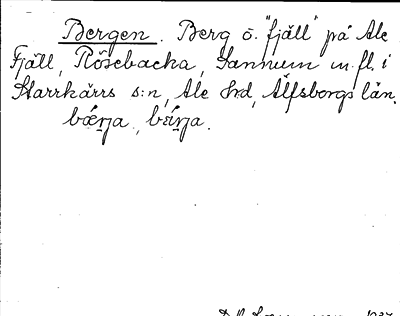 Bergen. Berg ö. "fjäll" på Ale
Fjäll, Rösebacka, Sannum m. fl. i
Starrkärrs s:n, Ale Hrd, Älfsborgs län.
bærja, bärja.
1937